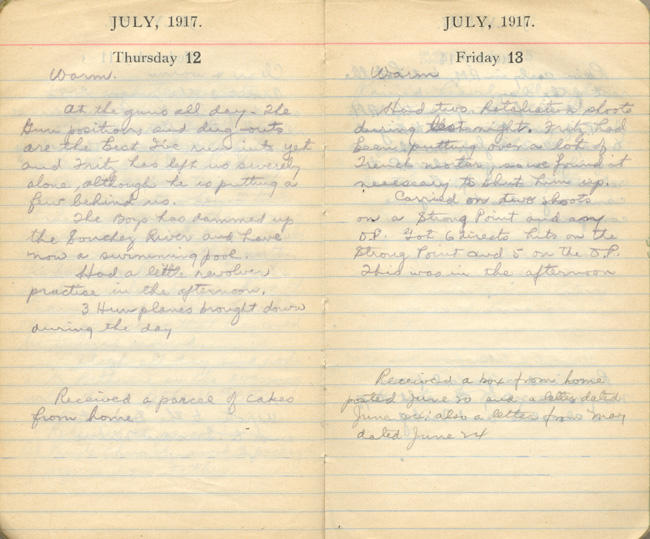 JULY, 1917.
Thursday 12
Warm.
At the guns all day. The
Gun positions and dug-outs
are the best I've run into yet
and Fritz has left us severely
alone, although he is putting a
few behind us.
The Boys has dammed up
the Souchez River and have
now a swimming pool.
Had a little revolver
practice in the afternoon.
3 Hun planes brought down
during the day
Received a parcel of cakes
from home
JULY, 1917.
Friday 13
Warm
Had two Retaliation shoots
during last night. Fritz had
been putting over a lot of
Trench mortars, so we found it
necessary to shut him up.
Carried on two shoots
on a Strong Point and any
O.P. Got 6 directs hits on the
Strong Point and 5 on the O.P.
This was in the afternoon
Received a box from home
posted June 20 and a letter dated
June also a letter from May
dated June 24